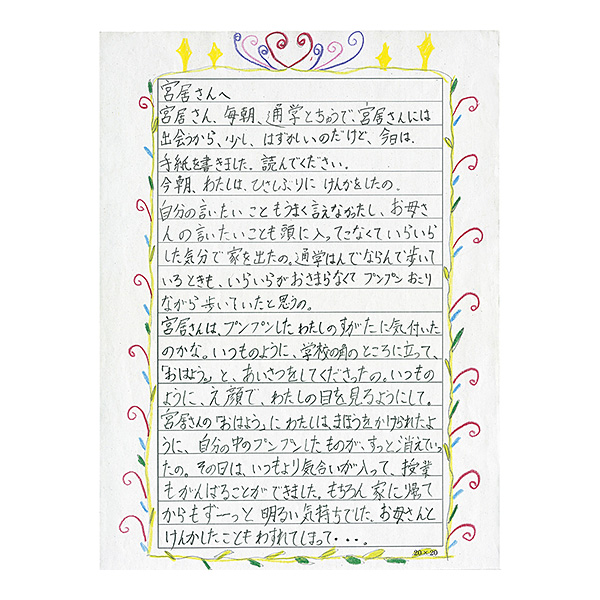 宮居さんへ
宮居さん、毎朝、通学とちゅうで、宮居さんには
出会うから、少し、はずかしいのだけど、今日は、
手紙を書きました。読んでください。
今朝、わたしは、ひさしぶりにけんかをしたの。
自分の言いたいこともうまく言えなかったし、お母さ
んの言いたいことも頭に入ってこなくていらいら
した気分で家を出たの。通学はんでならんで歩いて
いるときも、いらいらがおさまらなくてプンプンおこり
ながら歩いていたと思うの。
宮居さんは、プンプンしたわたしのすがたに気付いた
のかな。いつものように、学校の角のところに立って、
「おはよう。」と、あいさつをしてくださったの。いつもの
ように、え顔で、わたしの目を見るようにして。
宮居さんの「おはよう。」にわたしは、まほうをかけられたよ
うに、自分の中のプンプンしたものが、すっと消えていっ
たの。その日は、いつもより気合いが入って、授業
もがんばることができました。もちろん家に帰って
からもずーっと、明るい気持ちでした。お母さんと
けんかしたこともわすれてしまって・・・。
20×20